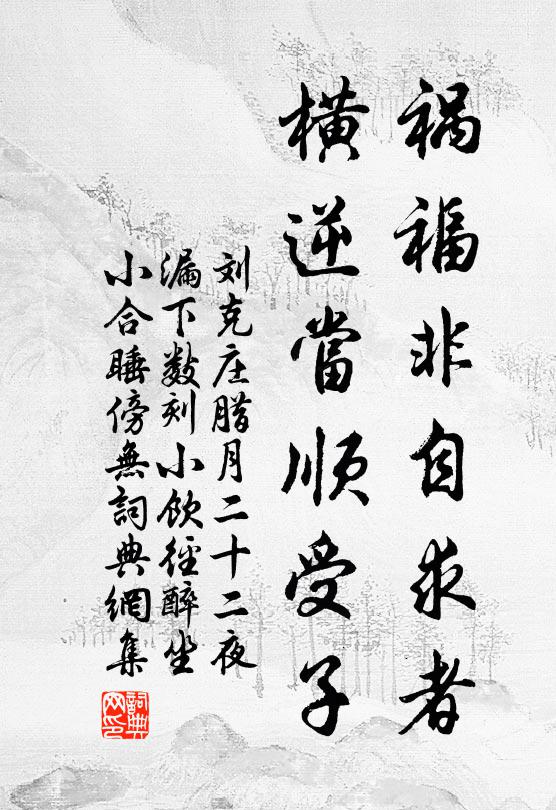 祸福非自求者
横逆當順受子
刘克庄腊月二十二夜
漏下数刻小饮径醉坐
小合睡傍無詞典網集
詞典網印